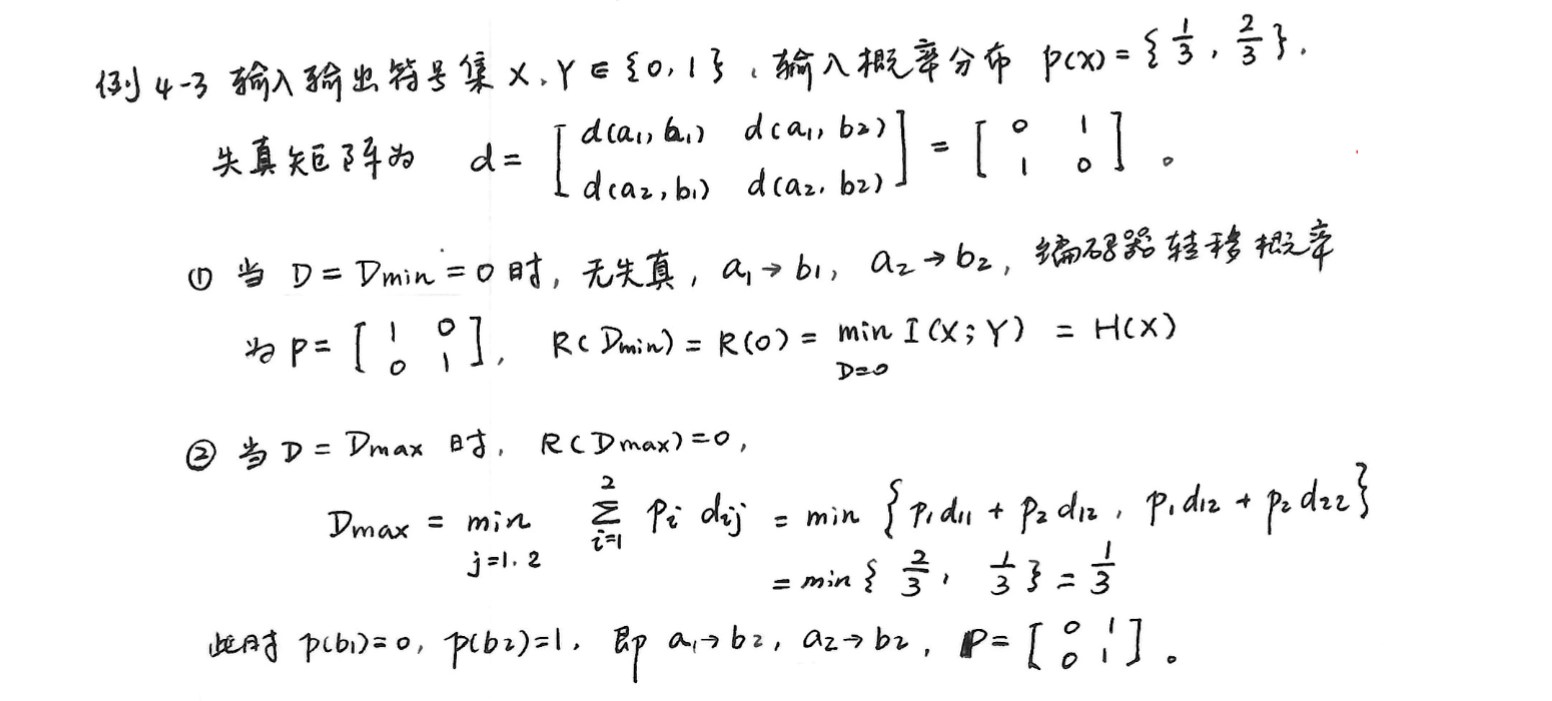 例4-3 输入输出符号集 X、Y ∈ {0, 1}、输入概率分布 p(x) = {1/3, 2/3}.
失真矩阵为 d = [d(a1, b1) d(a1, b2); d(a2, b1) d(a2, b2)] = [0 1; 1 0]。
① 当 D = Dmin = 0 时, 无失真, a1 → b1, a2 → b2, 编码器转移概率
为 P = [1 0; 0 1], R(Dmin) = R(0) = min_{D=0} I(X; Y) = H(X)
② 当 D = Dmax 时, R(Dmax) = 0,
Dmax = min_{j=1.2} Σ_{i=1}^{2} Pi dij = min {P1d11 + P2d12, P1d12 + P2d22}
= min {2/3, 1/3} = 1/3
此时 p(b1)=0, p(b2)=1, 即 a1→b2, a2→b2, P = [0 1; 0 1]。